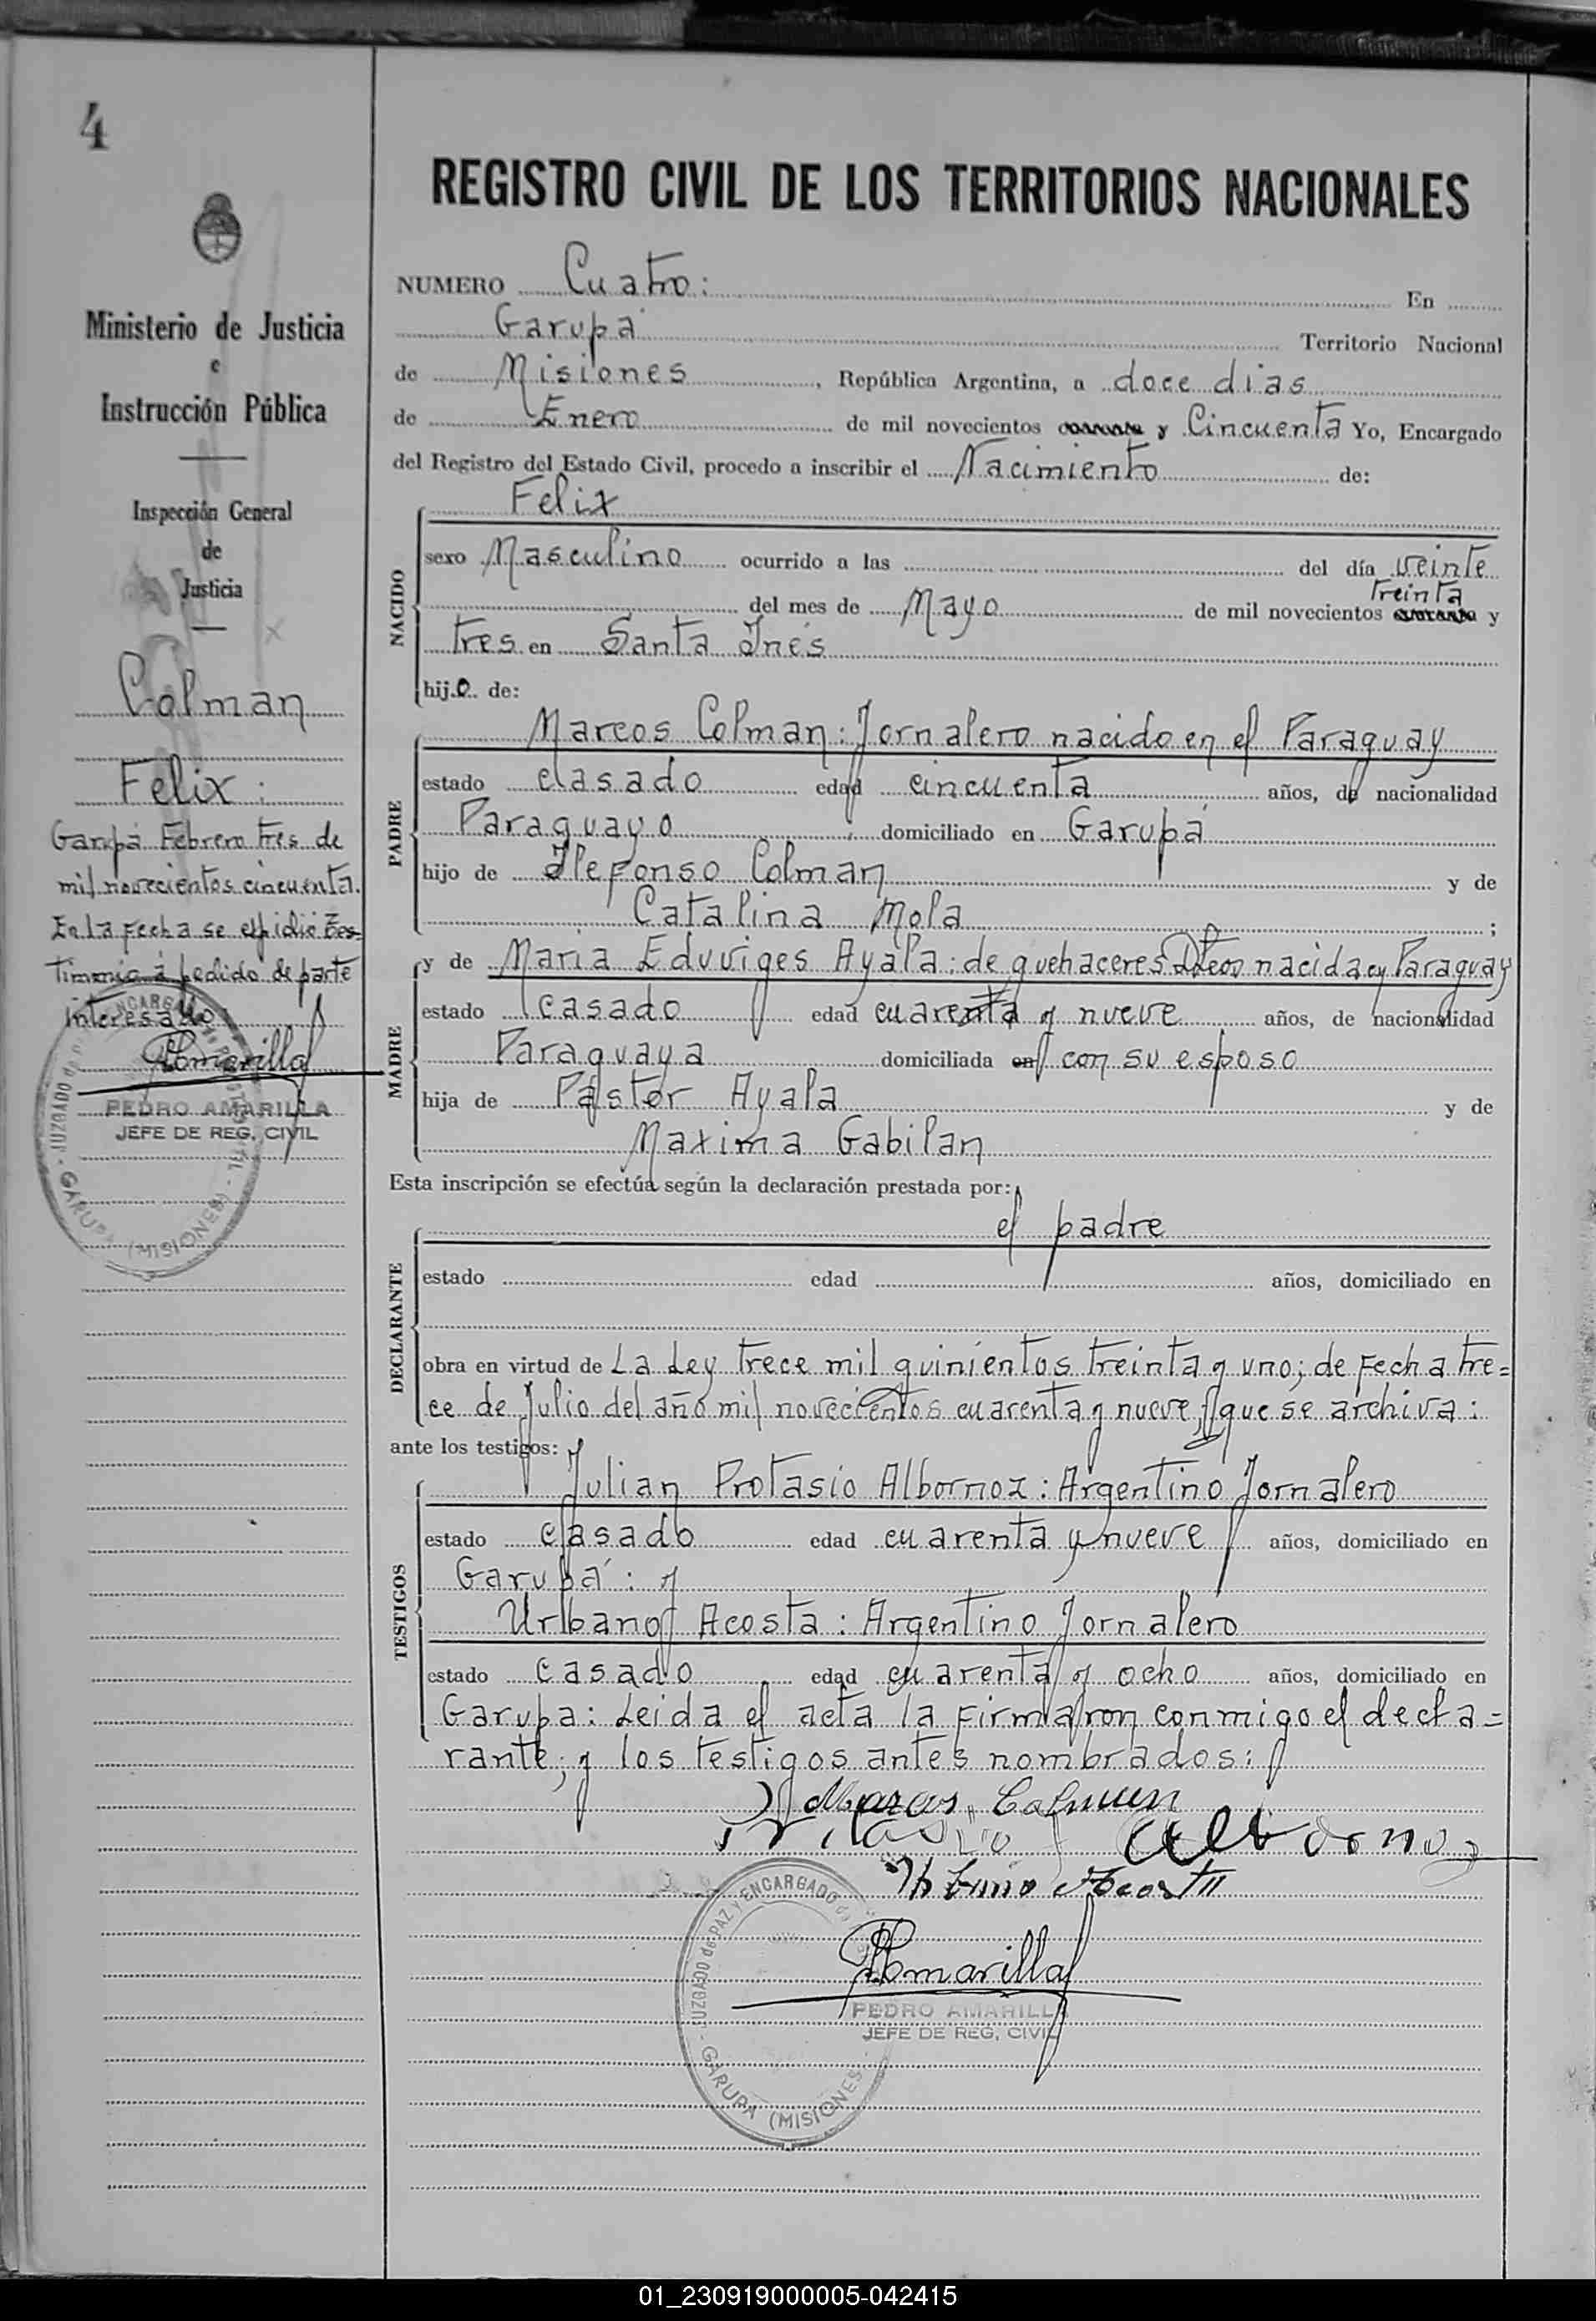 4
REGISTRO CIVIL DE LOS TERRITORIOS NACIONALES
Ministerio de Justicia
e
Instrucción Pública
Inspección General
de
Justicia
Colman
Felix :
Garupá Febrero tres de
mil novecientos cincuenta.
En la Fecha se expidió Tes=
timonio a pedido de parte
interesado
PEDRO AMARILLA
JEFE DE REG. CIVIL
GARUPA (MISIONES)
NUMERO Cuatro: En
Garupá Territorio Nacional
de Misiones, República Argentina, a doce dias
de Enero de mil novecientos cuarenta y Cincuenta Yo, Encargado
del Registro del Estado Civil, procedo a inscribir el Nacimiento de:
NACIDO
Felix
sexo Masculino ocurrido a las del día veinte
treinta
del mes de Mayo de mil novecientos cuarenta y
tres en Santa Inés
hijo de:
PADRE
Marcos Colman: Jornalero nacido en el Paraguay
estado casado edad cincuenta años, de nacionalidad
Paraguayo domiciliado en Garupá
hijo de Ilefonso Colman y de
Catalina Mola ;
MADRE
y de Maria Eduviges Ayala: de quehaceres nacida en Paraguay
estado casado edad cuarenta y nueve años, de nacionalidad
Paraguaya domiciliada en con su esposo
hija de Pastor Ayala y de
Maxima Gabilan
Esta inscripción se efectúa según la declaración prestada por:
DECLARANTE
el padre
estado edad años, domiciliado en
obra en virtud de La Ley trece mil quinientos treinta y uno; de Fecha tre=
ce de Julio del año mil novecientos cuarenta y nueve, que se archiva:
ante los testigos:
TESTIGOS
Julian Protasio Albornoz: Argentino Jornalero
estado casado edad cuarenta y nueve años, domiciliado en
Garupá: y
Urbano Acosta: Argentino Jornalero
estado casado edad cuarenta y ocho años, domiciliado en
Garupa: Leida el acta la Firmaron conmigo el decla=
rante; y los testigos antes nombrados:
Marcos Colman
Albornoz
Acosta
Amarilla
PEDRO AMARILLA
JEFE DE REG. CIVIL
JUZGADO de PAZ y ENCARGADO
GARUPA (MISIONES)
01_230919000005-042415